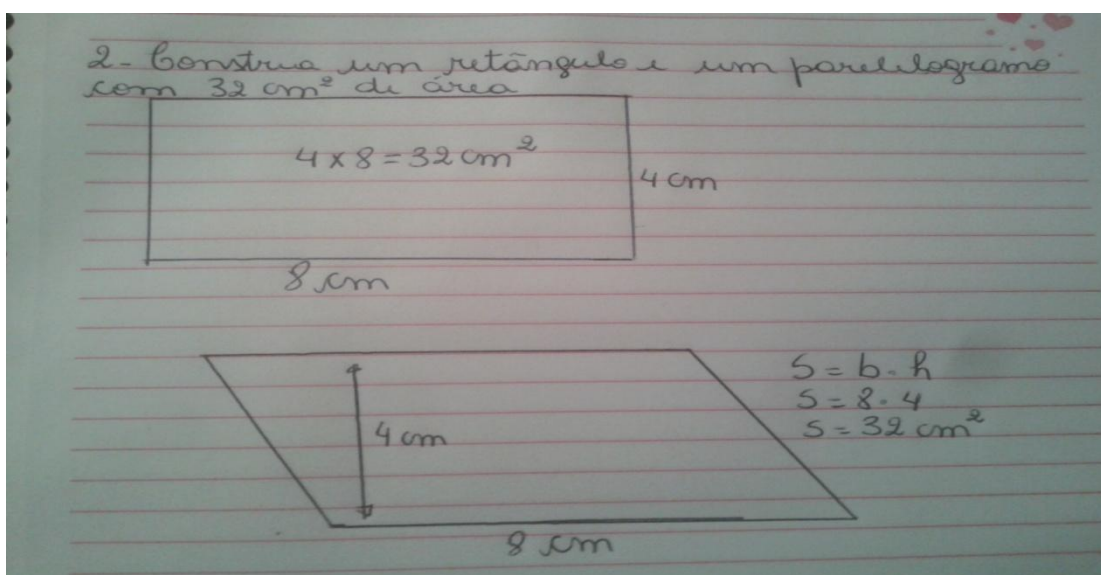 2- Construa um retângulo e um parelelogramo
com 32 cm² de área
4 x 8 = 32 cm²
4 cm
8 cm
S = b . h
S = 8 . 4
S = 32 cm²
4 cm
8 cm